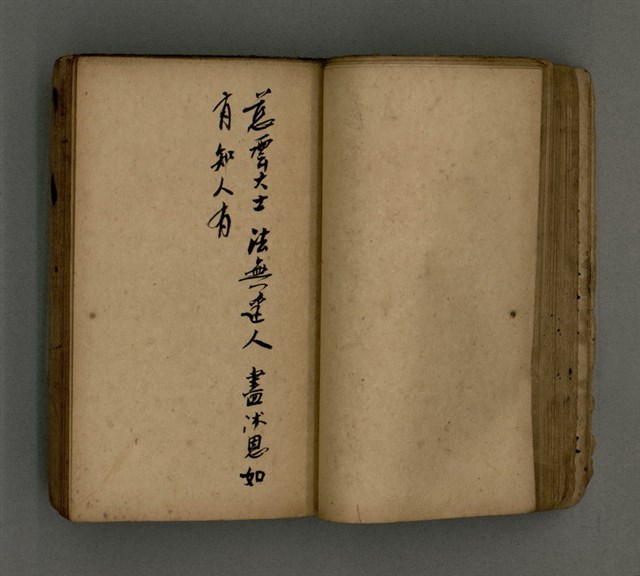 慈雲大士 法無邊人 盡沐恩如
有知人有